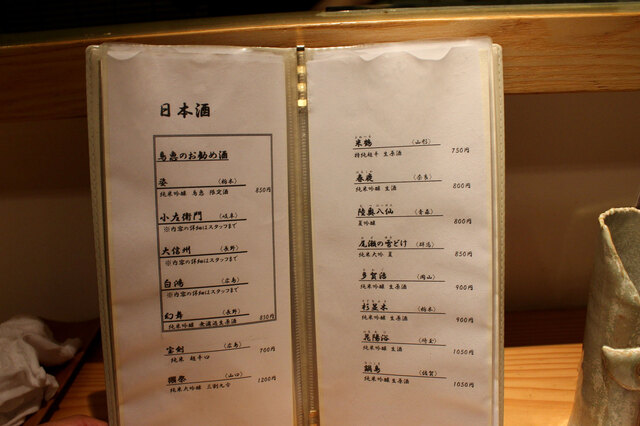 日本酒
鳥恵のお勧め酒
姿 （栃木）
純米吟醸 鳥恵 限定酒 850円
小左衛門 （岐阜）
※内容の詳細はスタッフまで
大信州 （長野）
※内容の詳細はスタッフまで
白鴻 （広島）
※内容の詳細はスタッフまで
幻舞 （長野）
純米吟醸 無濾過生原酒 850円
宝剣 （広島）
純米 超辛口 700円
獺祭 （山口）
純米大吟醸 三割九分 1200円
米鶴 （山形）
特純超辛 生原酒 750円
春鹿 （奈良）
純米吟醸 生酒 800円
陸奥八仙 （青森）
夏吟醸 800円
尾瀬の雪どけ （群馬）
純米大吟 夏 850円
多賀治 （岡山）
純米吟醸 生原酒 900円
杉並木 （栃木）
純米吟醸 生原酒 900円
花陽浴 （埼玉）
純米吟醸 生酒 1050円
鍋島 （佐賀）
純米吟醸生原酒 1050円